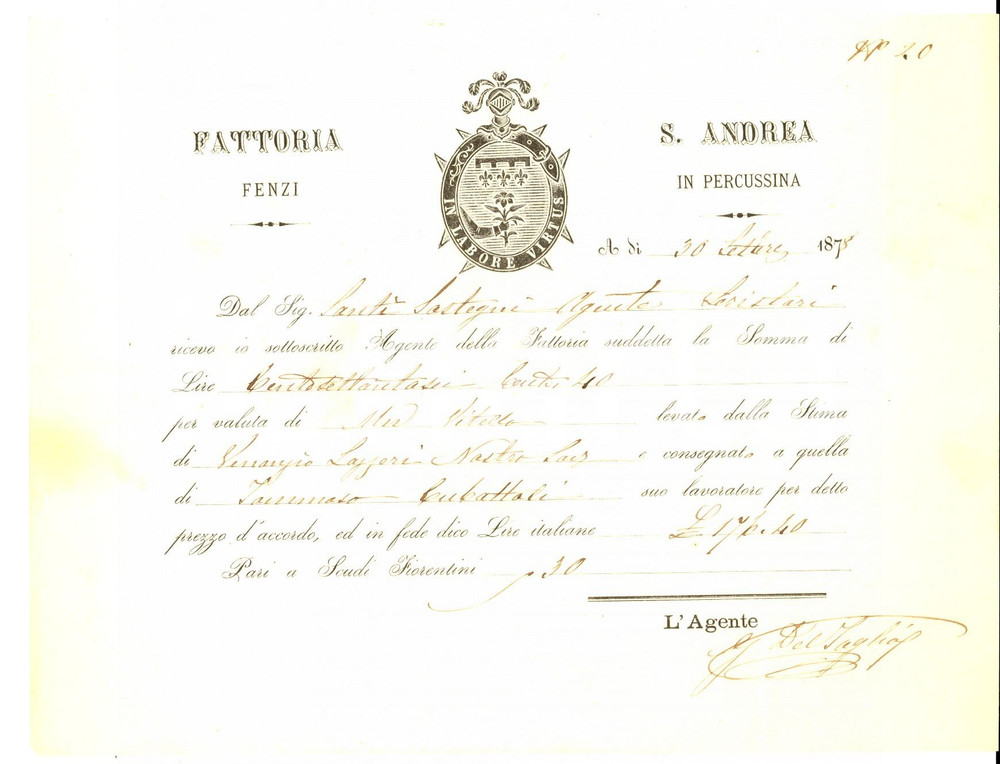 N° 20
FATTORIA
FENZI
S. ANDREA
IN PERCUSSINA
IN LABORE VIRTUS
A dì 30 Settbre 1878
Dal Sig. Santi Sostegni Agente
ricevo io sottoscritto Agente della Fattoria suddetta la Somma di
Lire Centosettantasei Cent. 40
per valuta di Un Vitello levato dalla Stima
di Venanzio Lazzeri Nostro e consegnato a quella
di Tommaso Cubattoli suo lavoratore per detto
prezzo d'accordo, ed in fede dico Lire italiane £ 176.40
Pari a Scudi Fiorentini 30
L'Agente
Del Taglia